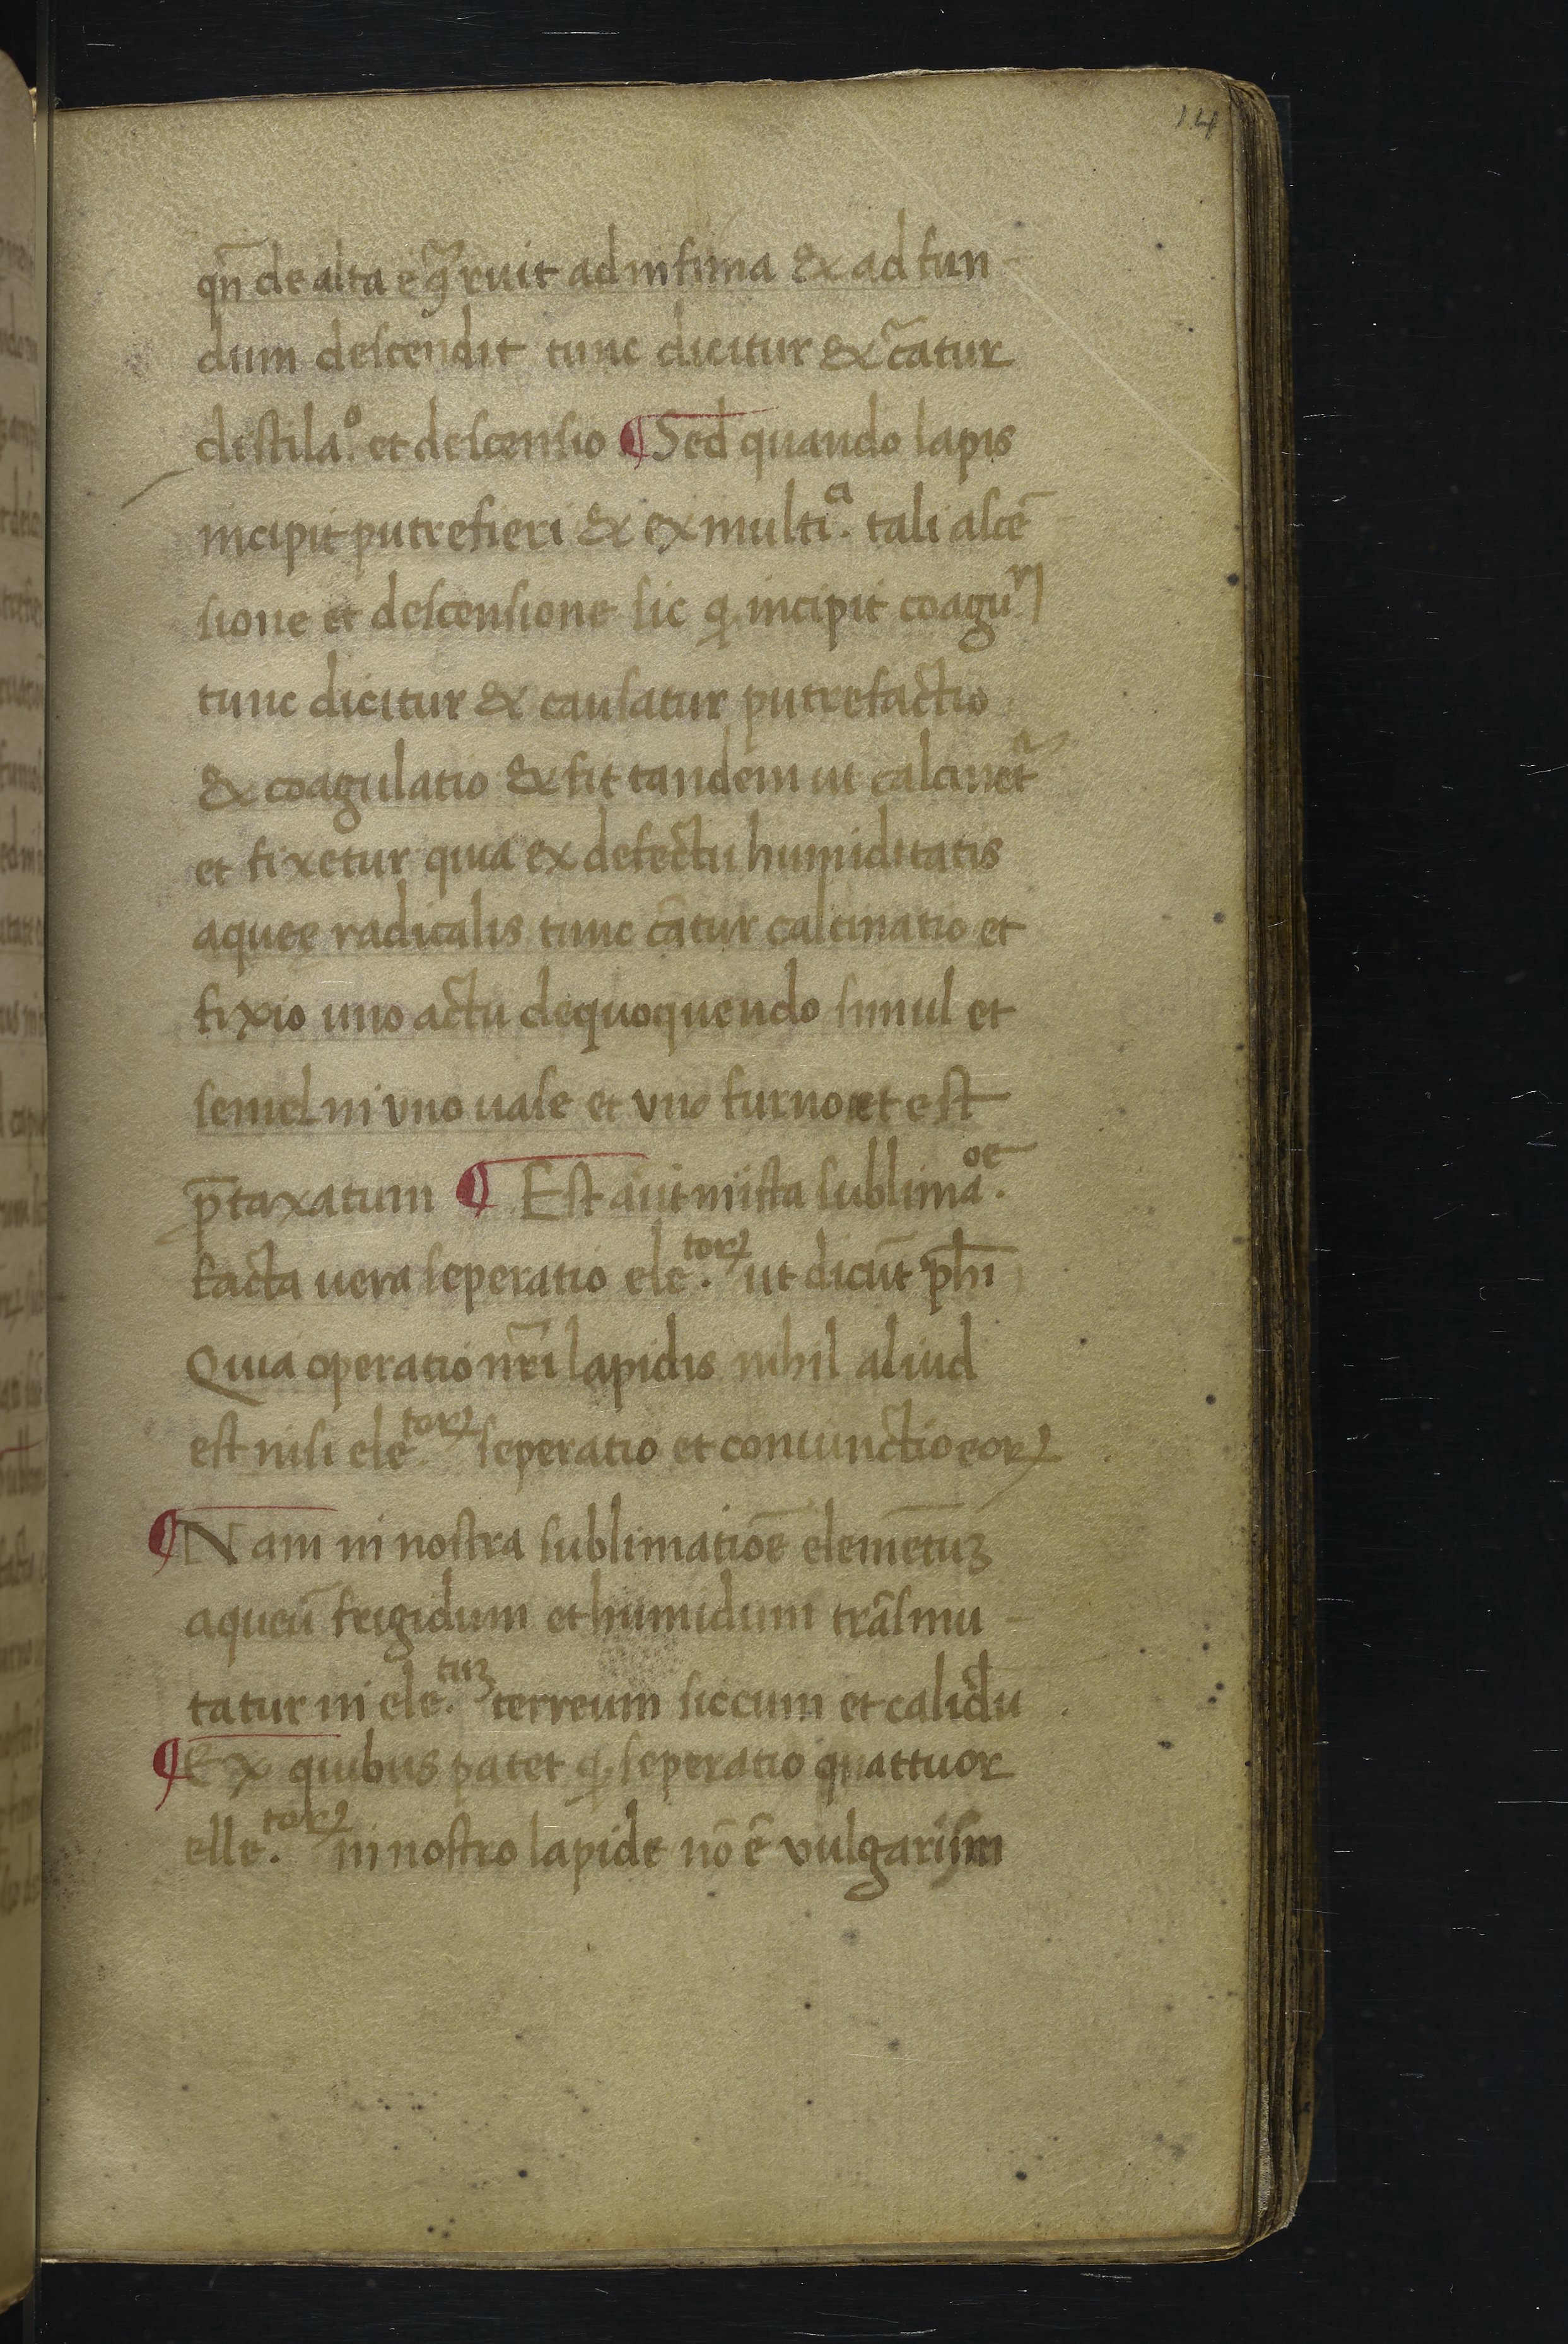 14
qn̄ de alta ruit ad infima & ad fun-
dum descendit tunc dicitur & cātur
distila.º et descensio ¶ Sed quando lapis
incipit putrefieri & ex multi.ª tali ascē-
sione et descensione sic ꝙ incipit coagu
tunc dicitur & causatur putrefactio
& coagulatio & fit tandem ut calcinet᷑
et fixetur quia ex defectu humiditatis
aqueę radicalis tunc cātur calcinatio et
fixio uno actu dequoquendo simul et
semel in vno uase et vno furno et est
p̄taxatum ¶ Est aūt in ista sublima.ºᵉ
facta uera seperatio ele.ᵗᵒʳꝝ ut dicūt ph̄i
Quia operatio nr̄i lapidis nihil aliud
est nisi ele.ᵗᵒʳꝝ seperatio et coniunctio eoꝝ
¶ Nam in nostra sublimatiōe elemētuꝫ
aqueū frigidum et humidum trāsmu-
tatur in ele.ᵗᵘꝫ terreum siccum et calidū
¶ Ex quibus patet ꝙ seperatio quattuor
elle.ᵗᵒʳꝝ in nostro lapide nō ē vulgarism